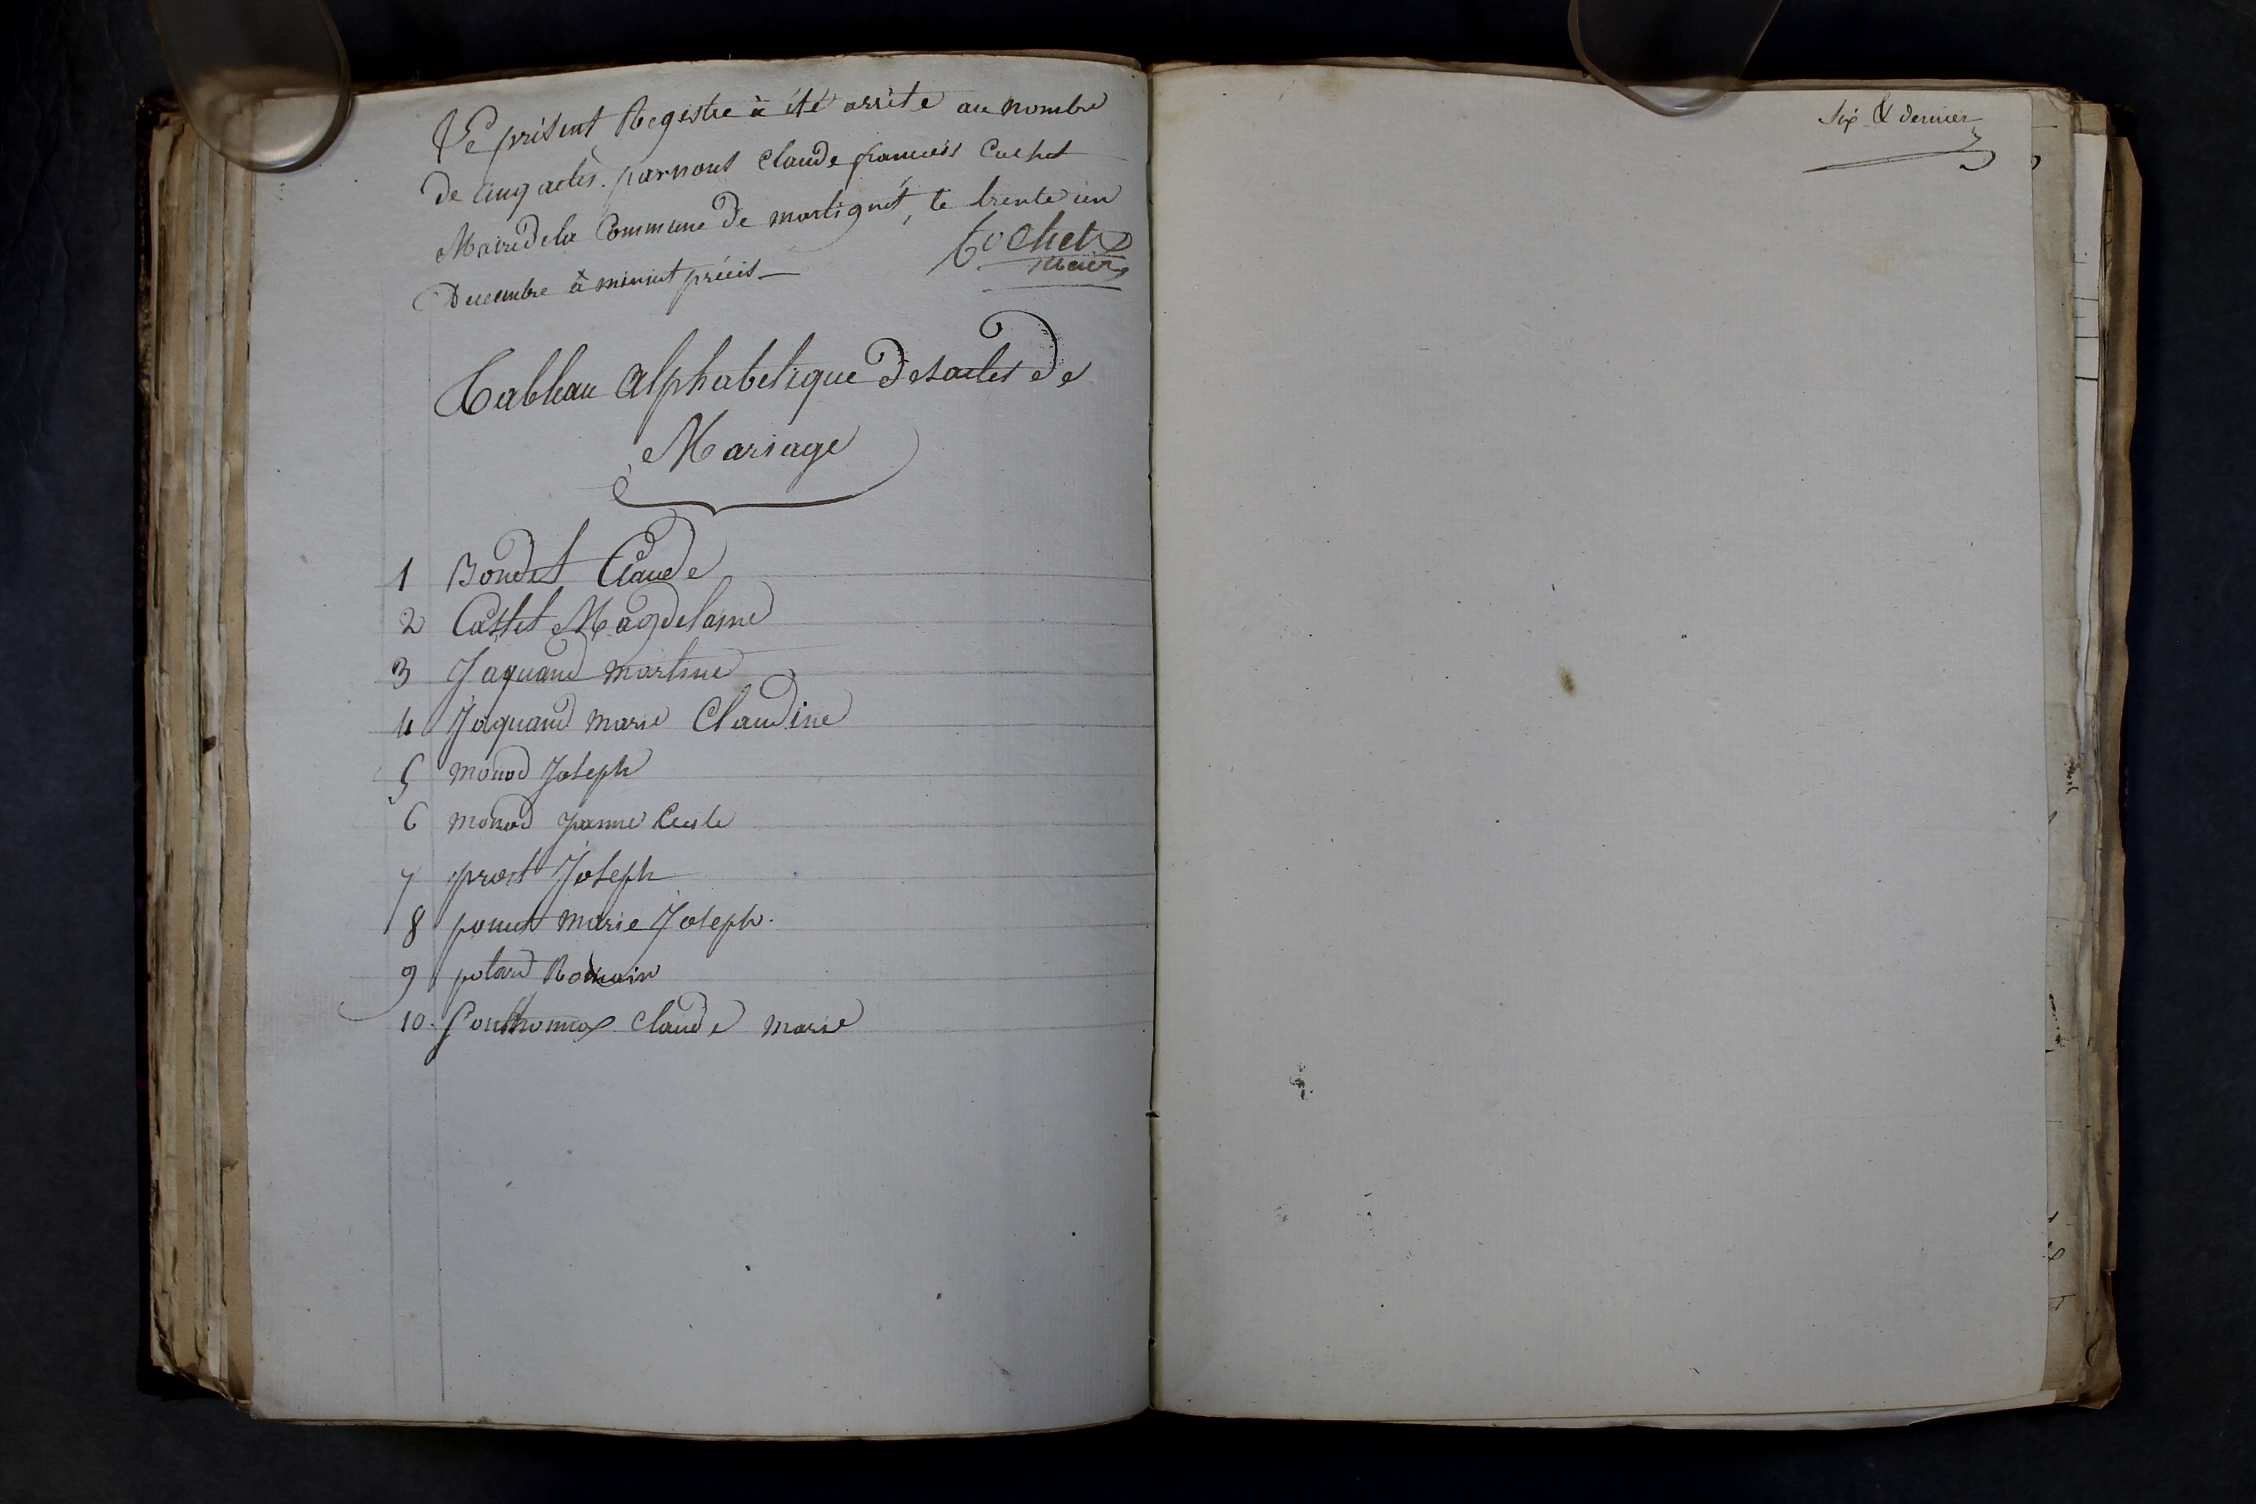 Le présent Registre à été arrête au nombre
de cinq actes. par nous Claude françois Cochet
Maire de la Commune de martignat, le trente un
Decembre à minuit précis
Cochet
Maire
Tableau Alphabetique des actes de
Mariage
1 Bondet Claude
2 Cattet Magdelaine
3 Jaquand martine
4 Jaquand marie Claudine
5 monod Joseph
6 monod Janne
7 prost Joseph
8 poncet marie Joseph.
9 potard Romain
10. Claude marie
Six & dernier